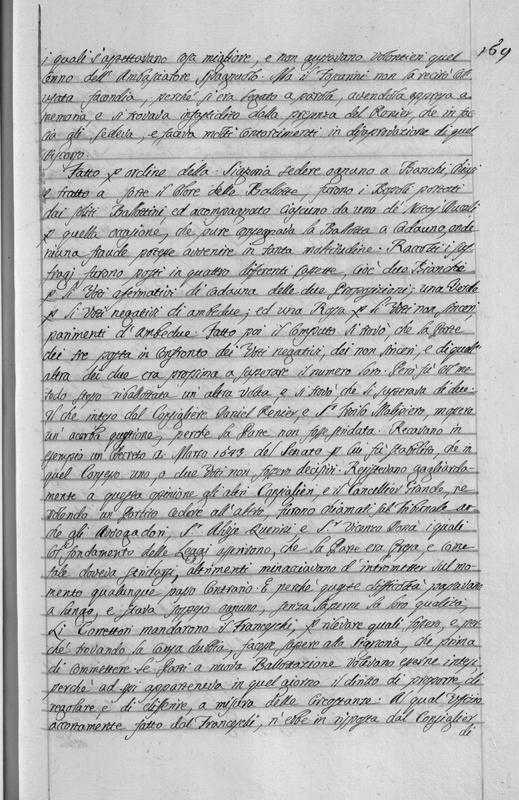 169
i quali s'aspettavano cosa migliore, e non udivano volontieri quel
cenno dell'Ambasciatore Spagnuolo. Ma il Foscarini non la recitò coll'
usata facondia, perchè s'era legato a parola, avendola appresa a
memoria e si trovava infastidito dalla presenza del Renier, che in fac-
cia gli sedeva, e faceva molti contorcimenti in disapprovazione di quel
Discorso.
Fatto p ordine della Signoria sedere ognuno a Banchi, chiusi
e tratto a sorte il Color delle Ballotte, furono i Bossoli portati
dai soliti Ballottini ed accompagnato ciascuno da uno de' Nodari Ducali
p quella occasione, che pure consegnava la Ballotta a cadauno, onde
niuna fraude potesse avvenire in tanta moltitudine. Raccolti i suf-
fragj furono posti in quattro differenti cassette, cioè due Bianche
p li Voti afermativi di cadauna delle due Proposizioni; una Verde
p li Voti negativi di ambedue; ed una Rossa p li Voti non sinceri
parimenti d'Ambedue. Fatto poi il computto si trovò, che la Parte
dei tre posta in confronto dei Voti negativi, dei non sinceri, e di quell'
altra dei due era prossima a superare il numero loro. Però fù coll' me-
todo stesso riballottata un'altra volta, e si trovò che li superava di due.
Il che inteso dal Consigliere Daniel Renier, e S.r Troilo Malipiero, mossero
un'acerba questione, perchè la Parte non fosse stridata. Recavano in
esempio un Decreto 2. Marzo 1643 del Senato p cui fù stabilito, che in
quel Consesso uno, o due Voti non fossero decisivi. Resistevano gagliarda-
mente a questa opinione gli altri Consiglieri, e il Cancellier Grande, ne
volendo un Partito cedere all'altro, furono chiamati sul Tribunale an-
che gli Avvogadori, S.r Alvise Querini e S.r Vicenzo Donà i quali
col fondamento delle Leggi asserivano, che la Parte era Presa, e come
tale doveva stridarsi, altrimenti minacciavano d'intrometter sul mo-
mento qualunque passo contrario. E perchè queste difficoltà passavano
a lungo, e stava sospeso ognuno, senza saperne la loro qualità,
Li Correttori mandarono il Franceschi, p rilevare quali fossero, e per-
chè trovando la cosa dubbia, facesse sapere alla Signoria, che prima
di commettere le Parti a nuova Ballottazione volevano esserne intesi
perchè ad essi apparteneva in quel giorno il diritto di proporre, di
regolare e di differire, a misura delle Circostanze. Al qual Uffizio
accortamente fatto dal Franceschi, n'ebbe in risposta dal Consiglier
di